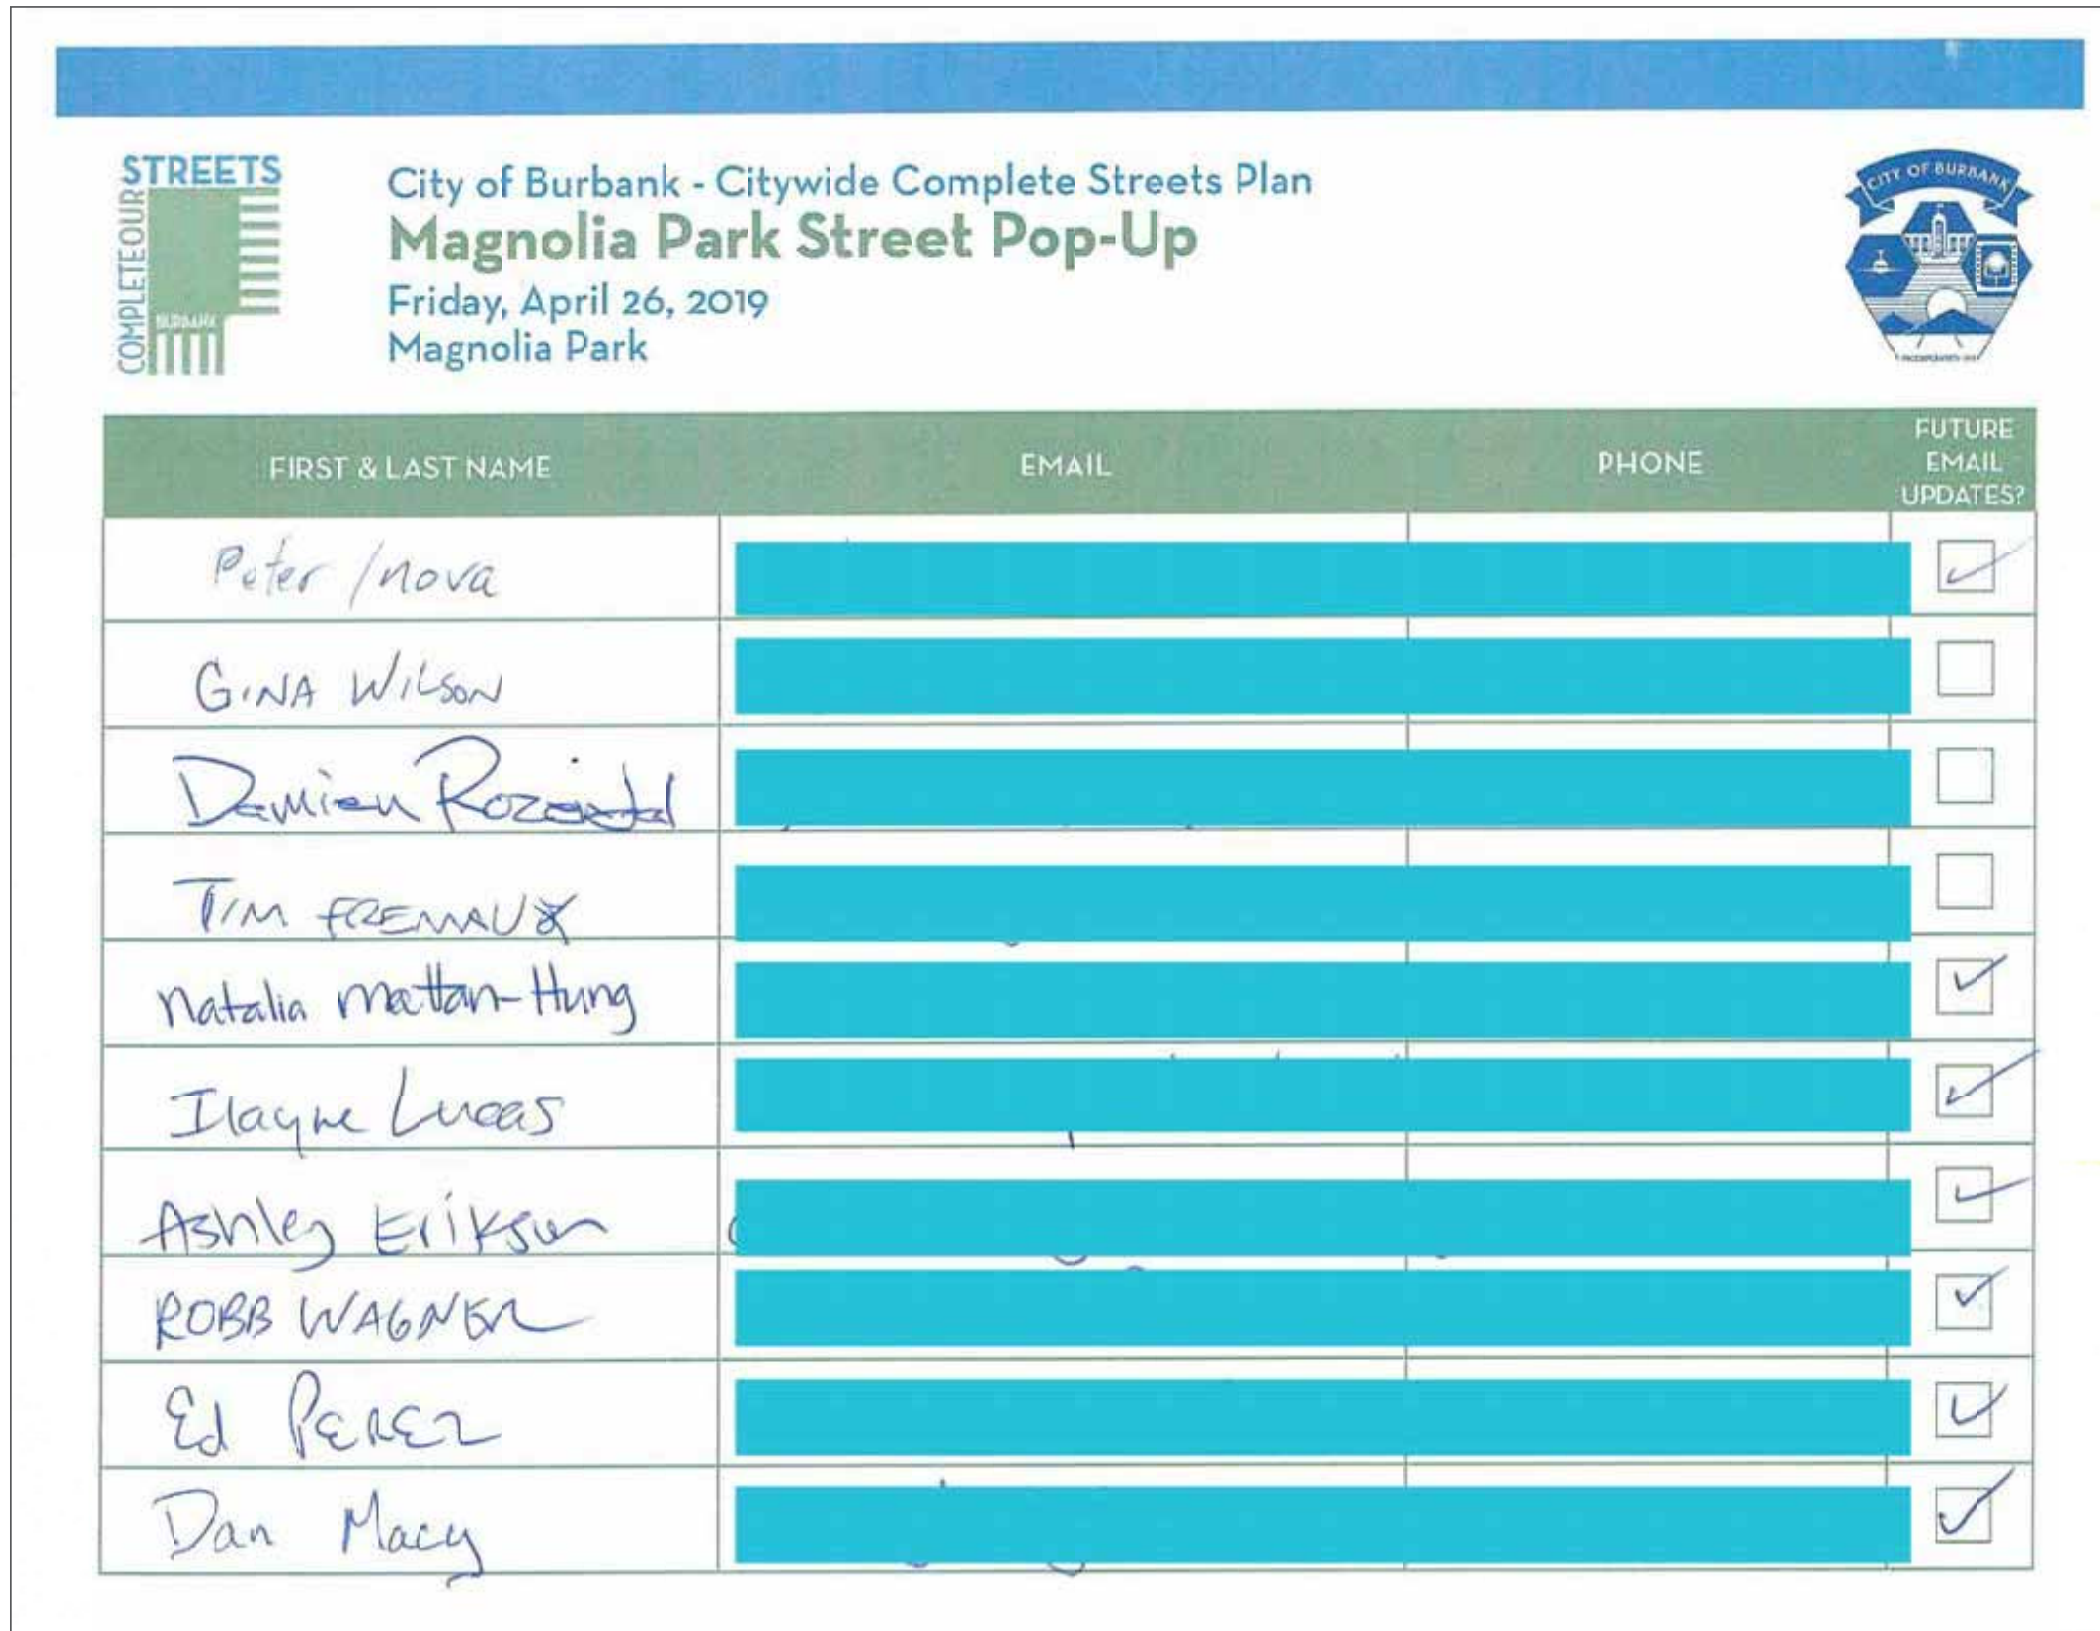 STREETS
COMPLETEOUR
BURBANK
City of Burbank - Citywide Complete Streets Plan
Magnolia Park Street Pop-Up
Friday, April 26, 2019
Magnolia Park
CITY OF BURBANK
FIRST & LAST NAME EMAIL PHONE FUTURE EMAIL UPDATES?
Peter /nova
GINA WILSON
Damien
TIM FREMAUX
Natalia Mattan-Hung
Ilayne Lucas
Ashley Erikson
ROBB WAGNER
Ed PEREZ
Dan Macy